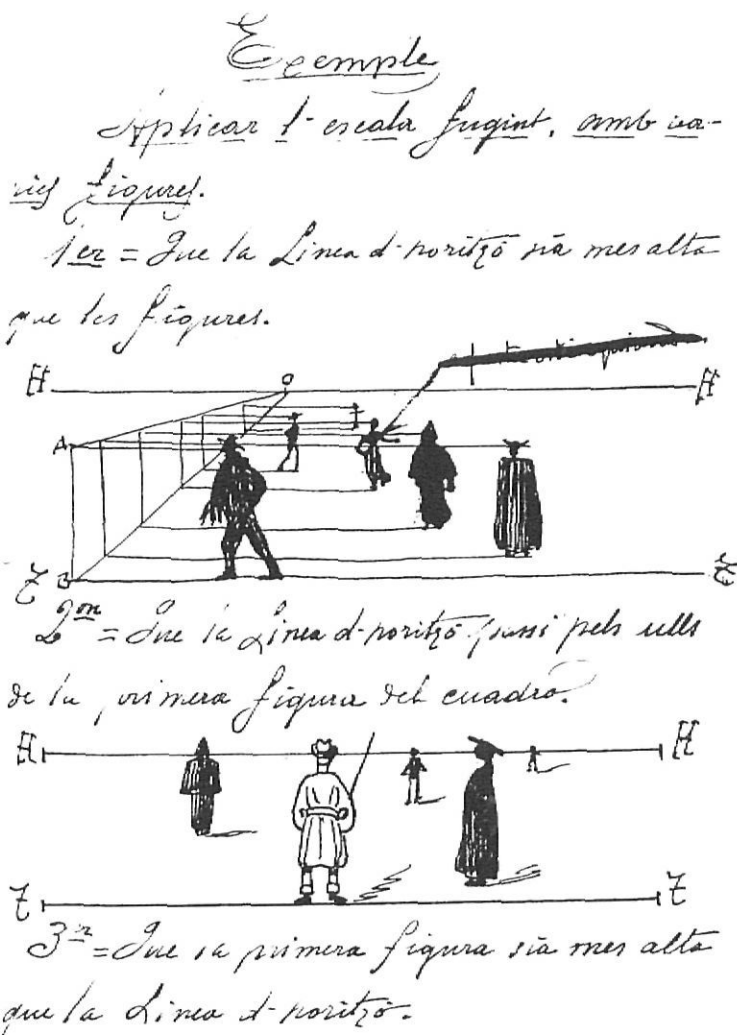 Exemple
Aplicar l'escala fugint, amb va-
ries figures.
1er = Que la Linea d'horitzó sia mes alta
que les figures.
H H
O
A
T B T
2on = Que la Linea d'horitzó passi pels ulls
de la primera figura del cuadro.
H H
T T
3er = Que la primera figura sia mes alta
que la Linea d'horitzó.